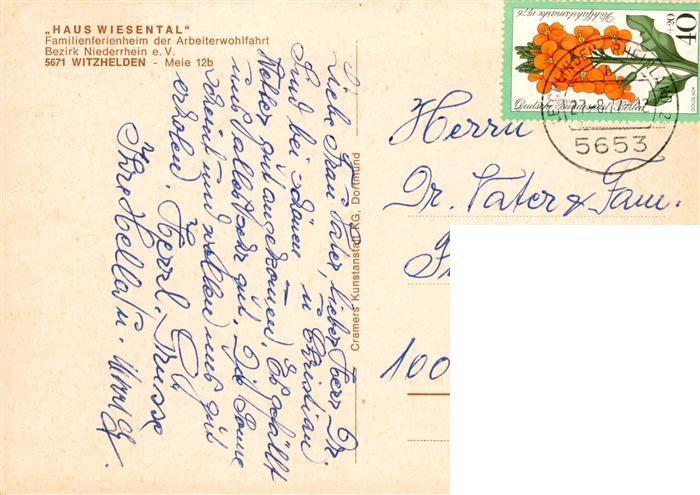 „HAUS WIESENTAL“
Familienferienheim der Arbeiterwohlfahrt
Bezirk Niederrhein e.V.
5671 WITZHELDEN - Meie 12b
Liebe Frau Vater, lieber Herr Dr.
Sind bei schönem
Wetter gut angekommen. Es gefällt
uns alles sehr gut. Die Sonne
scheint und wollen uns gut
erholen. Herzl. Grüsse
Ihre Hella u.
u. Christian
Cramers Kunstanstalt KG, Dortmund
Wohlfahrtsmarke 1976
40
+20
GOLDLACK
Deutsche Bundespost Berlin
5653
Herrn
Dr. Vater & Fam.
100